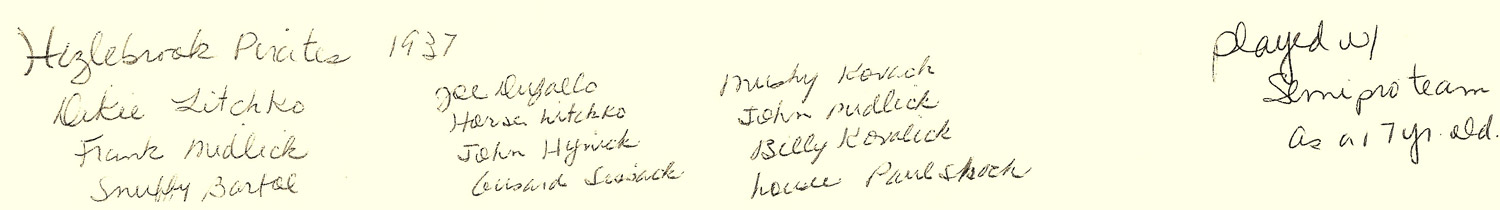 Hazlebrook Pirates 1937
Dekie Litchko
Frank Mudlick
Snuffy Bartol
Joe Dugallo
Horse Litchko
John Hynick
Mushy Kovach
John Mudlick
Billy Kovalick
Paul Shock
played w/
Semipro team
as a 17 yr. old.